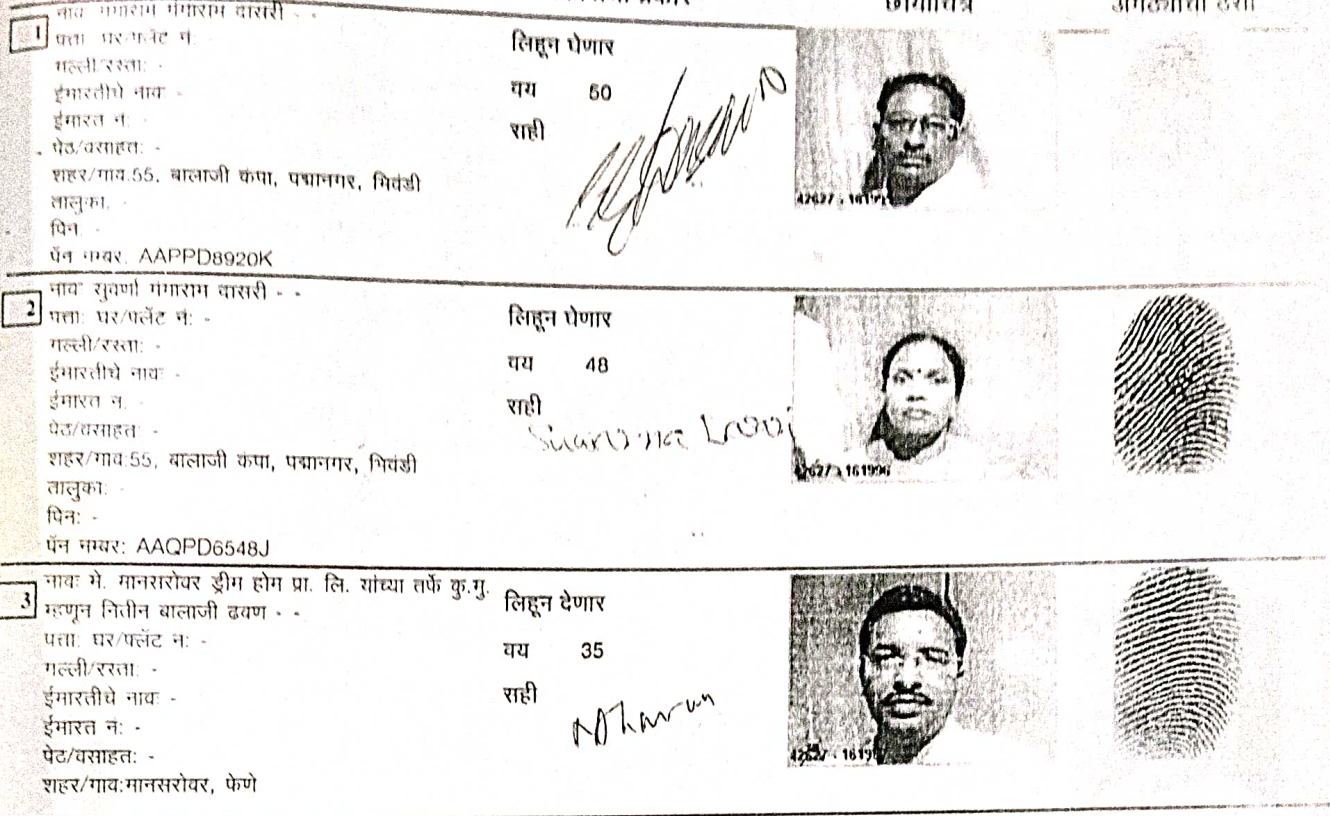 छायाचित्र
1
नाव गंगाराम गंगाराम दासरी - -
पत्ता घर/फ्लॅट नं
गल्ली/रस्ता: -
ईमारतीचे नाव -
ईमारत नं: -
पेठ/वसाहत: -
शहर/गाव:55, बालाजी कंपा, पद्मानगर, भिवंडी
तालुका: -
पिन: -
पॅन नम्बर: AAPPD8920K
लिहून घेणार
वय 50
सही
42627
2
नाव सुवर्णा गंगाराम दासरी - -
पत्ता: घर/फ्लॅट नं: -
गल्ली/रस्ता: -
ईमारतीचे नाव: -
ईमारत नं: -
पेठ/वसाहत: -
शहर/गाव:55, बालाजी कंपा, पद्मानगर, भिवंडी
तालुका: -
पिन: -
पॅन नम्बर: AAQPD6548J
लिहून घेणार
वय 48
सही
161996
3
नाव: मे. मानसरोवर ड्रीम होम प्रा. लि. यांच्या तर्फे कु.मु.
म्हणून नितीन बालाजी ढवण - -
पत्ता: घर/फ्लॅट नं: -
गल्ली/रस्ता: -
ईमारतीचे नाव: -
ईमारत नं: -
पेठ/वसाहत: -
शहर/गाव:मानसरोवर, फेणे
लिहून देणार
वय 35
सही